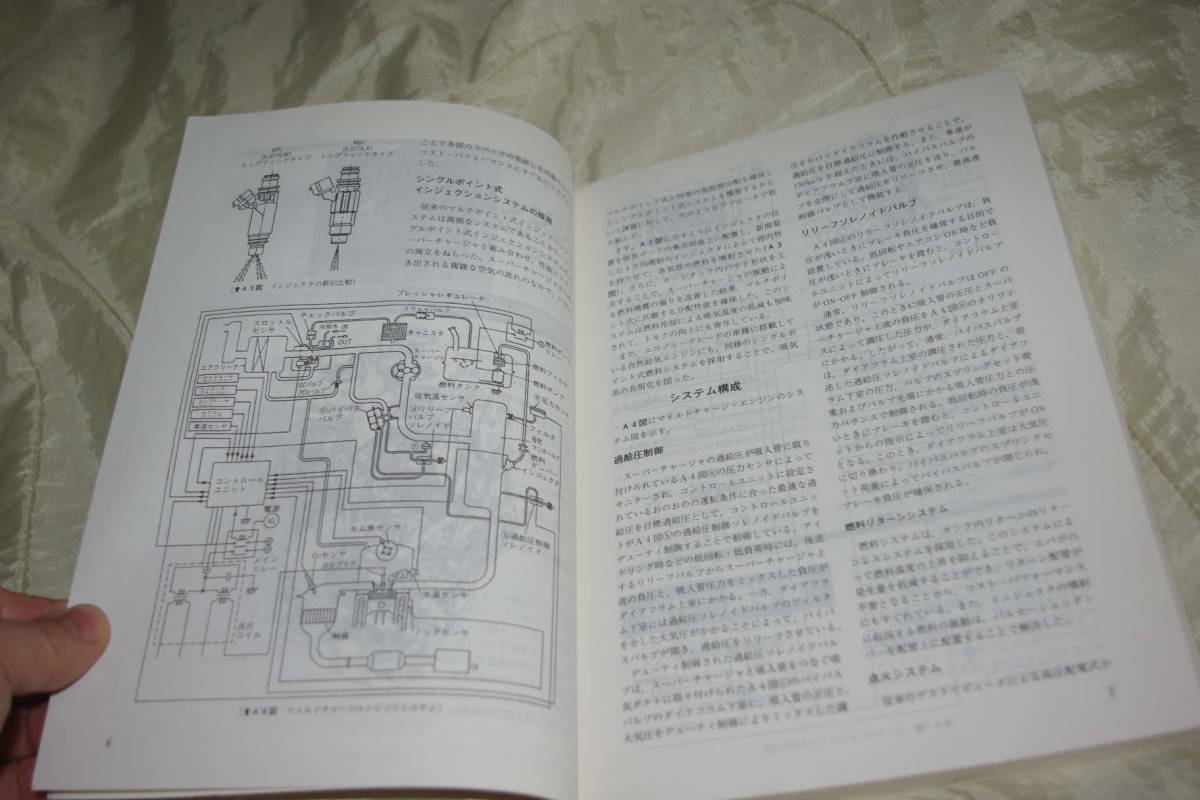 SPI
(EJ07S/W)
トップフィードタイプ
MPI
(EJ07S/X)
トップフィードタイプ
(⬆A3図 インジェクタの新旧比較)
ことで各部のスペックの見直しを
コスト・パフォーマンスにすぐれたシステム
した。
シングルポイント式
インジェクションシステムの採用
従来のマルチポイント式インジェクション
ステムは高価なシステムであることから、シン
グルポイント式インジェクションシステムをス
ーパーチャージャと組み合わせ、性能とコスト
の両立をねらった。スーパーチャージャから吐
き出される複雑な空気の流れのなかで、
プレッシャレギュレータ
チェックバルブ
2ウェイバルブ
スロットル
センサ
冷却水 IN
OUT
キャニスタ
エアクリーナ
スーパー
チャージャ
燃料タンク
燃料フィルタ
燃料ポンプ
ISCバルブ
PCVバルブ
吸気温センサ
ⓐ圧力センサ
ⓒバイパス
バルブ
ⓓリリーフ
バルブ
ソレノイド
フィルタ
吸気
マニホールド
燃料
ダンパー
インジェクタ
車速センサ
コントロール
ユニット
電源
メイン
リレー
カム角センサ
O₂センサ
点火プラグ
ⓑ過給圧制御
ソレノイド
水温センサ
点火
コイル
触媒
ノックセンサ
(⬆A4図 マイルドチャージエンジンシステム)
6
マルチポイント式と同等の気筒間分配を確保し
たシングルポイント式システムを構築するかと
いう課題に対して、次のようなアプローチで取
り組んだ。
まず、A2図に示すようにインジェクタの位
置を吸気ポートの集合部直上に配置し、新開発
した4方向噴射のインジェクタによって指向性
を持たせて、各気筒の燃料を噴射させた(A3
図)。さらに、サージタンク内の中子形状を工
夫することで、スーパーチャージャの脈動によ
る燃料噴霧の偏りを改善した結果、マルチポイ
ント式に匹敵する分配性能を確保した。このシ
ステムは燃料冷却による吸気温度の低減も加味
されて、トルクの向上にも寄与している。
また、エコノミーグレードの車種に搭載して
いる自然給気エンジンにも、同様のシングルポ
イント式燃料システムを採用することで、吸気
系の共用化を図った。
システム構成
A4図にマイルドチャージ・エンジンのシス
テム図を示す。
過給圧制御
スーパーチャージャの過給圧が吸入管に取り
付けられているA4図ⓐの圧力センサによって
モニターされ、コントロールユニットに設定さ
れているおのおのの運転条件に合った最適な過
給圧を目標過給圧として、コントロールユニッ
トがA4図ⓑの過給圧制御ソレノイドバルブを
デューティ制御することで制御している。アイ
ドリング時などの低回転・低負荷時には、後述
するリリーフバルブからスーパーチャージャ上
流の負圧と、吸入管圧力をミックスした負圧が
ダイアフラム上室にかかる。一方、ダイアフラ
ム下室には過給圧ソレノイドバルブのフィルタ
を介した大気圧がかかることによって、バイパ
スバルブが開き、過給圧をリリーフさせている。
デューティ制御された過給圧ソレノイドバル
ブは、スーパーチャージャと吸入管をつなぐ吸
気ダクトに取り付けられたA4図ⓒのバイパス
バルブのダイアフラム下室に、吸入管の正圧と、
大気圧をデューティ制御によりミックスした調
圧をかけてダイアフラムを作動させることで、
過給圧を目標過給圧に制御する。また、車速が
130㎞/hを超えたときには、バイパスバルブの
ダイアフラム下室に吸入管の正圧を送り、バル
ブを全開にして過給圧をリリーフさせ、最高速
制御バルブとして機能する。
リリーフソレノイドバルブ
A4図ⓓのリリーフソレノイドバルブは、負
圧が浅いときにブレーキ負圧を確保する目的で
設置している。低回転やエアコンON時など負
圧が浅いときにブレーキを踏むと、コントロー
ルユニットによってリリーフソレノイドバルブ
がON-OFF制御される。
通常、リリーフソレノイドバルブはOFFの
状態であり、このときに吸入管の正圧とスーパ
ーチャージャ上流の負圧をA4図ⓔのオリフィ
スによって調圧した圧力が、ダイアフラム上室
にかかる。したがって、通常、バイパスバルブ
は、ダイアフラム上室の調圧された圧力と、前
述した過給圧ソレノイドバルブによるダイアフ
ラム下室の圧力、バルブのスプリングセット荷
重およびバルブ先端にかかる吸入管圧力との圧
力バランスで制御される。低回転時の負圧が浅
いときにブレーキを踏むと、コントロールユニ
ットからの指示によってリリーフバルブがON
となる。このとき、ダイアフラム上室は大気圧
に切り換わり、バイパスバルブのスプリングセ
ット荷重によってバイパスバルブが閉じられ、
ブレーキ負圧が確保される。
燃料リターンシステム
燃料システムは、タンク内リターンのリター
ンレスシステムを採用した。このシステムによ
って燃料温度の上昇を抑えることで、エバポの
発生量を低減することができ、リターン配管が
不要となることから、コスト・パフォーマンス
にもすぐれている。また、インジェクタの噴射
に起因する燃料の脈動は、パルセーションダン
パーを配管上に配置することで解決した。
点火システム
従来のデストリビュータによる高圧配電式か
7